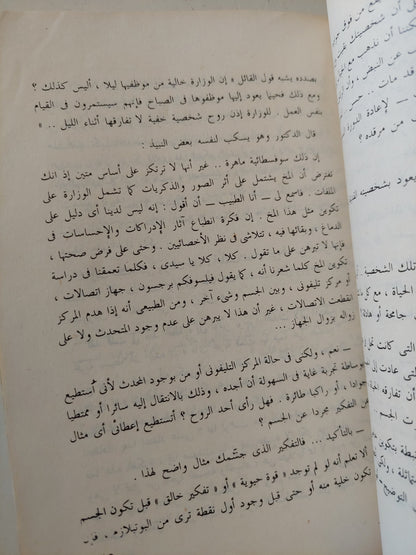 بصدده يشبه قول القائل « إن الوزارة خالية من موظفيها ليلا ، أليس كذلك ؟
ومع ذلك فحينما يعود إليها موظفوها فى الصباح فإنهم سيستمرون فى القيام
بنفس العمل . للوزارة إذن روح شخصية خفية لا تفارقها أثناء الليل .. »
قال الدكتور وهو يسكب لنفسه بعض النبيذ :
إن ذلك سوفسطائية ماهرة . غير أنها لا ترتكز على أساس متين إذ انك
تفترض أن المخ يشتمل على أثر الصور والذكريات كما تشمل الوزارة على
الملفات . فاسمع لى — أنا الطبيب — أن أقول : إنه ليس لدينا أى دليل على
تكوين مثل هذا المخ . إن فكرة انطباع آثار الإدراكات والإحساسات فى
الدماغ ، وبقائها فيه ، تتلاشى فى نظر الأخصائيين . وحتى على فرض صحتها ،
فإنها لا تبرهن على ما تقول . كلا ، كلا يا سيدى ، فكلما تعمقنا فى دراسة
تكوين المخ كلما شعرنا أنه ، كما يقول فيلسوفكم برجسون ، جهاز اتصالات ،
أو مركز تليفونى ، وبين الجسم وشىء آخر ، ومن الطبيعى أنه إذا هدم المركز
انقطعت الاتصالات ، غير أن هذا لا يبرهن على عدم وجود المتحدث ولا على
زواله بزوال الجهاز ...
— نعم ، ولكنى فى حالة المركز التليفونى أو من بوجود المحدث لأنى أستطيع
بوساطة تجربة غاية فى السهولة أن أجده ، وذلك بالانتقال إليه سائرا أو ممتطيا
جوادا ، أو راكبا طائرة . فهل رأى أحد الروح ؟ أتستطيع إعطائى أى مثال
من التفكير مجردا عن الجسم ؟
— بالتأكيد ... فالتفكير الذى جشّمك مثال واضح لهذا .
ألا تعلم أنه لو لم توجد « قوة حيوية » أو « تفكير خالق » قبل تكون الجسم
تكون خلية منه أو حتى قبل وجود أول نقطة ترى من البوتبلازم